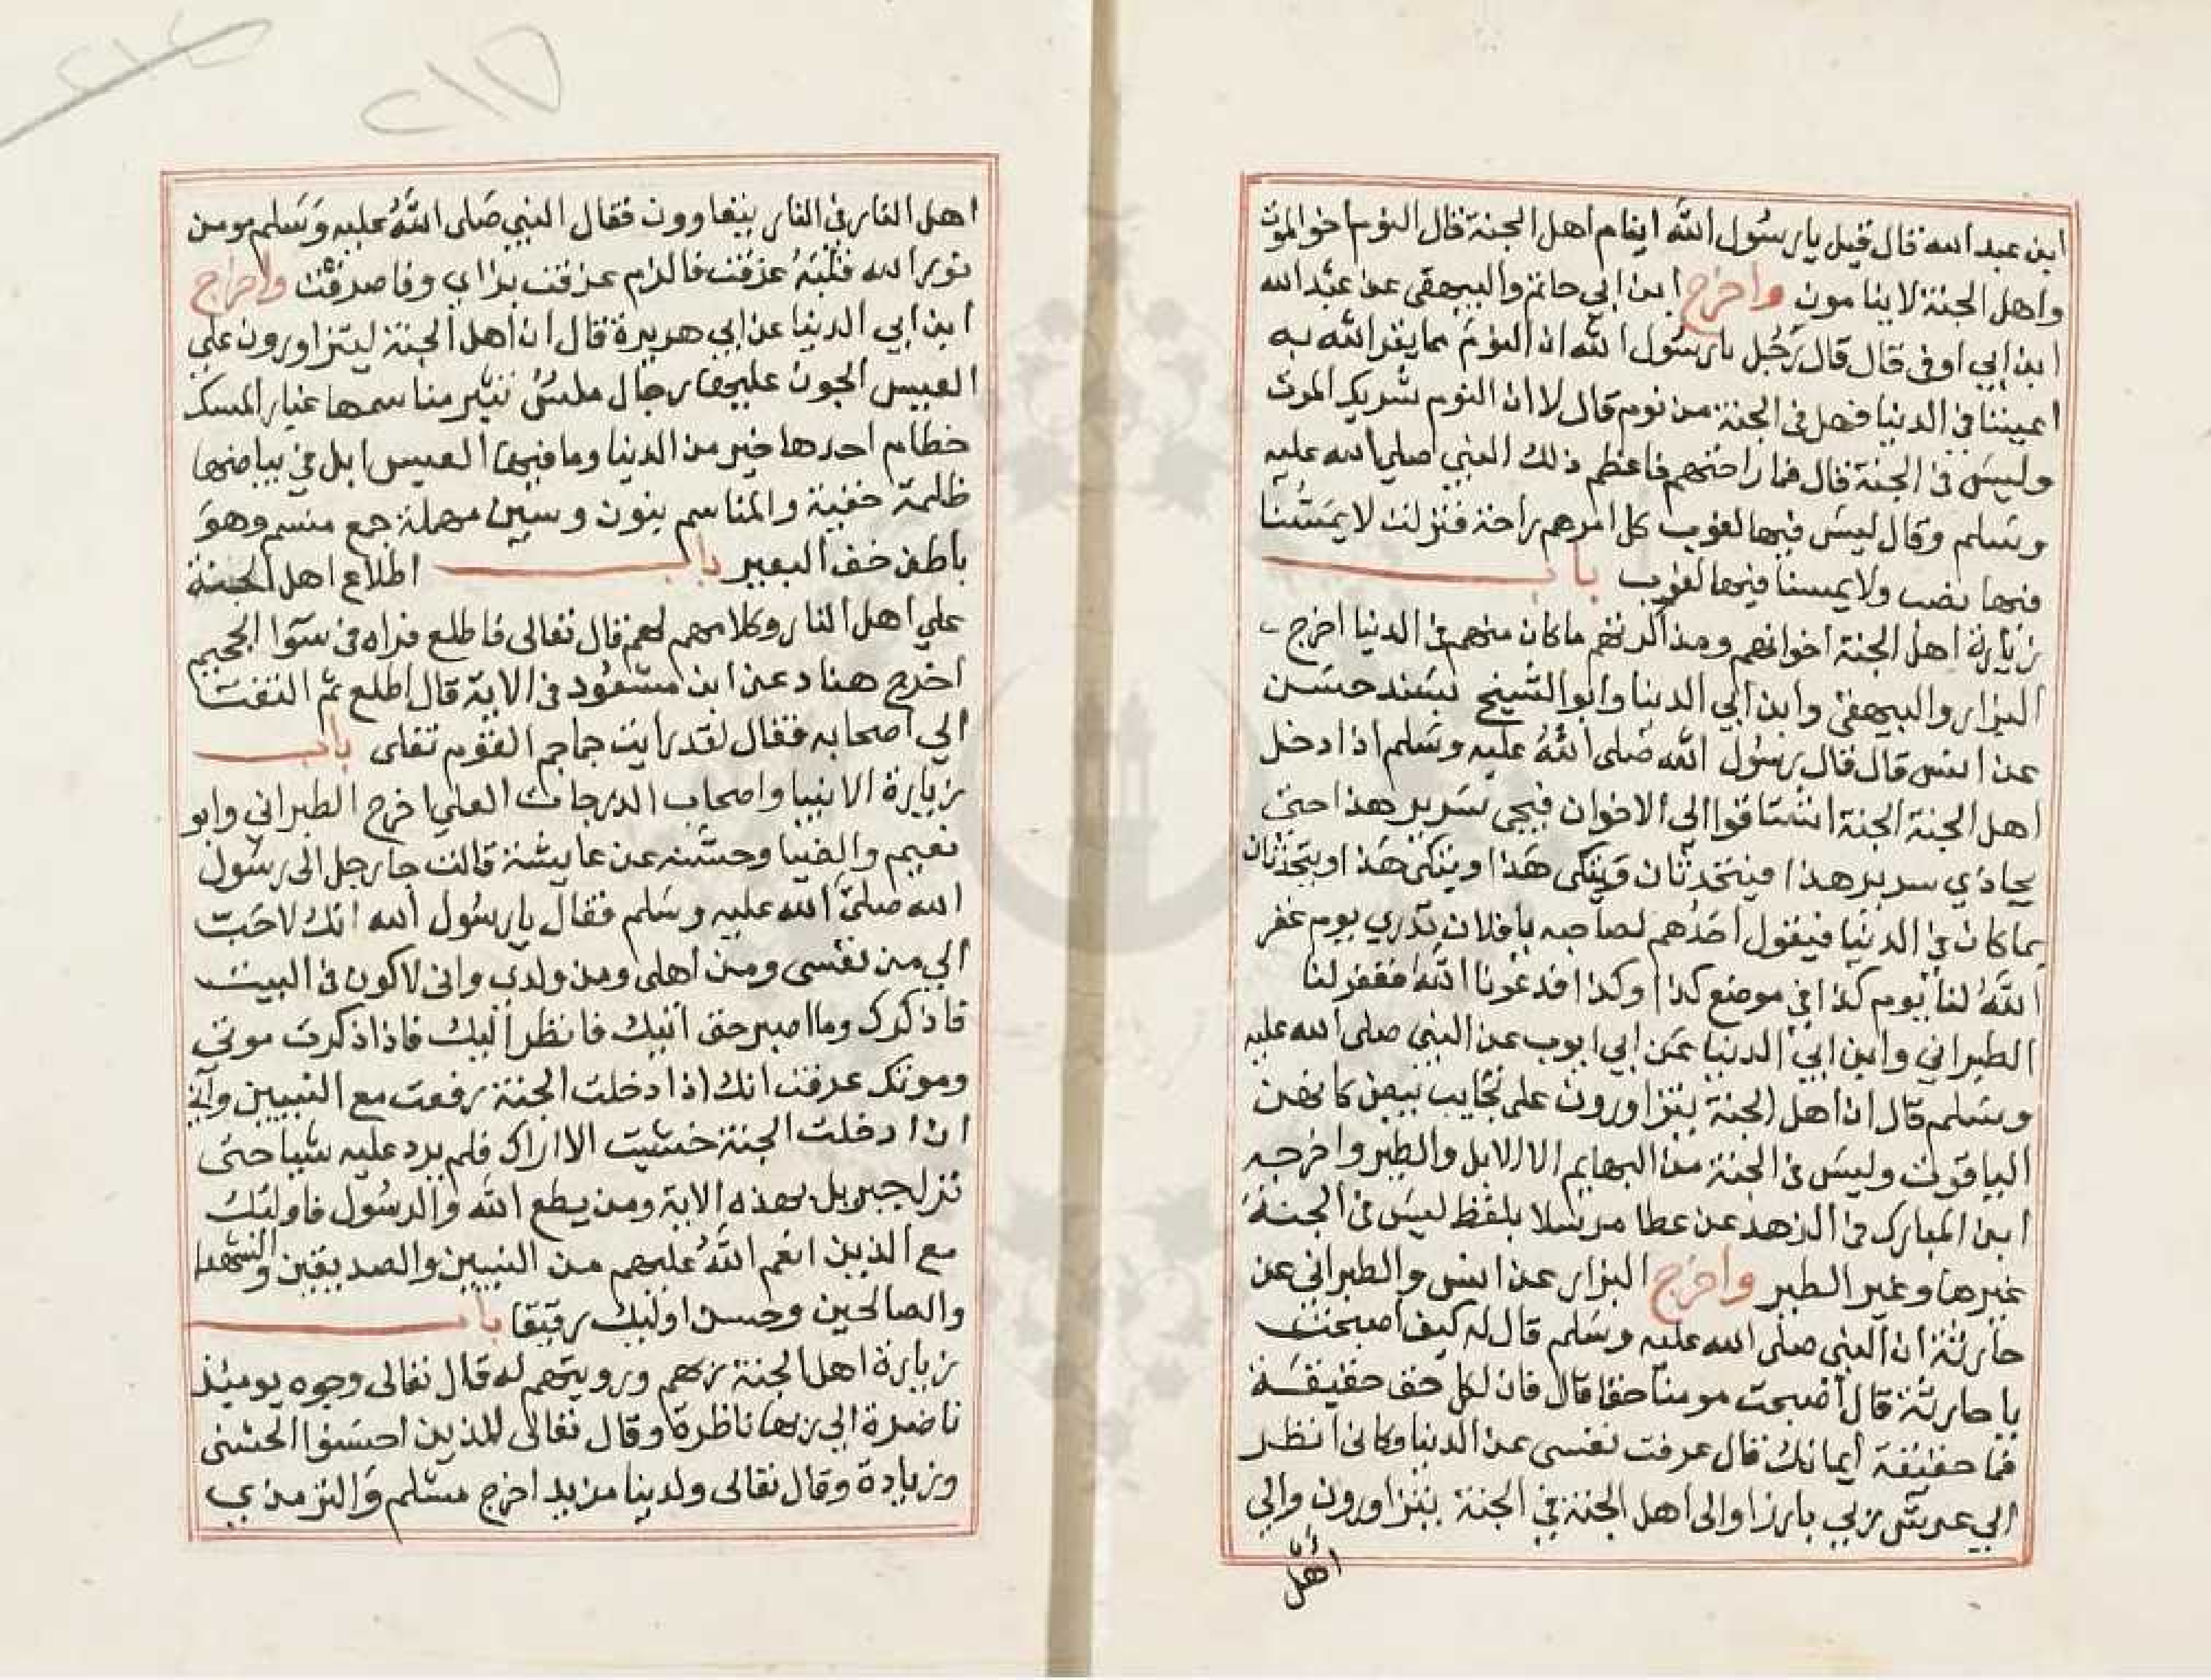 ابن عبد الله قال قيل يا رسُول الله اينام اهل الجنة قال النوم اخو الموت
واهل الجنة لا ينامون واخرج ابن ابي حاتم والبيهقى عن عبد الله
ابن ابي اوفى قال قال رَجُل يا رسُول الله ان النومَ مما يقر الله به
اعيننا في الدنيا فهل في الجنة من نوم قال لا ان النوم شريك الموت
وليسَ فى الجنة قال فما راحتهم فاعظم ذلك النبي صلى الله عليه
وسَلم وقال ليسَ فيها لغوب كل امرهم راحة فنزلت لا يمَسُّنا
فيها نصب ولا يمسنا فيها لغوب باب
زيارة اهل الجنة اخوانهم ومذاكرتهم ما كان منهم في الدنيا اخرج
البزار والبيهقى وابن ابي الدنيا وابو الشيخ بسَند حسَن
عن انس قال قال رسُول الله صَلى اللهُ عليه وسَلم اذا دخل
اهل الجنة الجنة اشتاقوا الى الاخوان فيجى سَرير هذا حتى
يحاذي سرير هذا فيتحدثان ويتكى هَذا ويتكى هَذا ويتحدثان
بما كان في الدنيا فيقول احَدُهم لصاحبه يا فلان تدري يوم غفر
اللهُ لنا يوم كذا في موضع كذا وكذا فدعونا اللهَ فغفر لنا
الطبراني وابن ابي الدنيا عَن ابي ايوب عن النبي صلى الله عليه
وسَلم قال ان اهل الجنة يتزاورون على نجايب بيض كانهن
الياقوت وليسَ فى الجنة من البهايم الا الابل والطير واخرجه
ابن المبارك فى الزهد عن عطا مرسَلا بلفظ ليسَ فى الجنة
غيرها وغير الطير واخرج البزار عن انس والطبرانى عن
حارثة ان النبي صلى الله عليه وسَلم قال له كيف اصبحت
يا حارثة قال اصبحت مومنا حقا قال فان لكل حق حقيقة
فما حقيقة ايمانك قال عزفت نفسى عن الدنيا وكانى انظر
الي عرش ربي بارزا والى اهل الجنة في الجنة يتزاورون والي
اهل
٢١٥
اهل النار في النار يتعاوون فقال النبي صَلى اللهُ عليه وَسَلم مومن
نور الله قلبَهُ عرفت فالزم واخرج
ابن ابي الدنيا عن ابي هريرة قال ان اهل الجنة ليتزاورون على
العيس الجون عليها رحال مليسُ تثير مناسمها غبار المسك
خطام احدها خير من الدنيا وما فيها العيس ابل في بياضها
ظلمة خفية والمناسم بنون وسين مهملة جمع منسم وهوَ
باطن خف البعير باب اطلاع اهل الجنة
علي اهل النار وكلامهم لهم قال تعالى فاطلع فراه فى سَوا الجحيم
اخرج هناد عن ابن مسعُود فى الاية قال اطلع ثم التفت
الي اصحابه فقال لقد رايت جماجم القوم تغلى باب
زيارة الانبيا واصحاب الدرجات العلي اخرج الطبراني وابو
نعيم والضيا وحسّنه عن عايشة قالت جا رجل الى رسُول
الله صلى الله عليه وسَلم فقال يا رسُول الله انك لاحَبّ
الي من نفسى ومن اهلى ومن ولدي وانى لاكون فى البيت
فاذكرك وما اصبر حتى اتيك فانظر اليك فاذا ذكرت موتي
وموتك عرفت انك اذا دخلت الجنة رفعت مع النبيين واني
ان ادخلت الجنة خشيت الا اراك فلم يرد عليه شيا حتى
نزل جبريل بهذه الاية ومن يطع الله والرسُول فاوليك
مع الذين انعم اللهُ عليهم من النبيين والصديقين والشهدا
والصالحين وحسن اوليك رفيقا باب
زيارة اهل الجنة ربهم ورويتهم له قال تعالى وجوه يوميذ
ناضرة الي ربها ناظرة وقال تعالى للذين احسَنوا الحسْنى
وزيادة وقال تعالى ولدينا مزيد اخرج مسْلم وَالترمذي